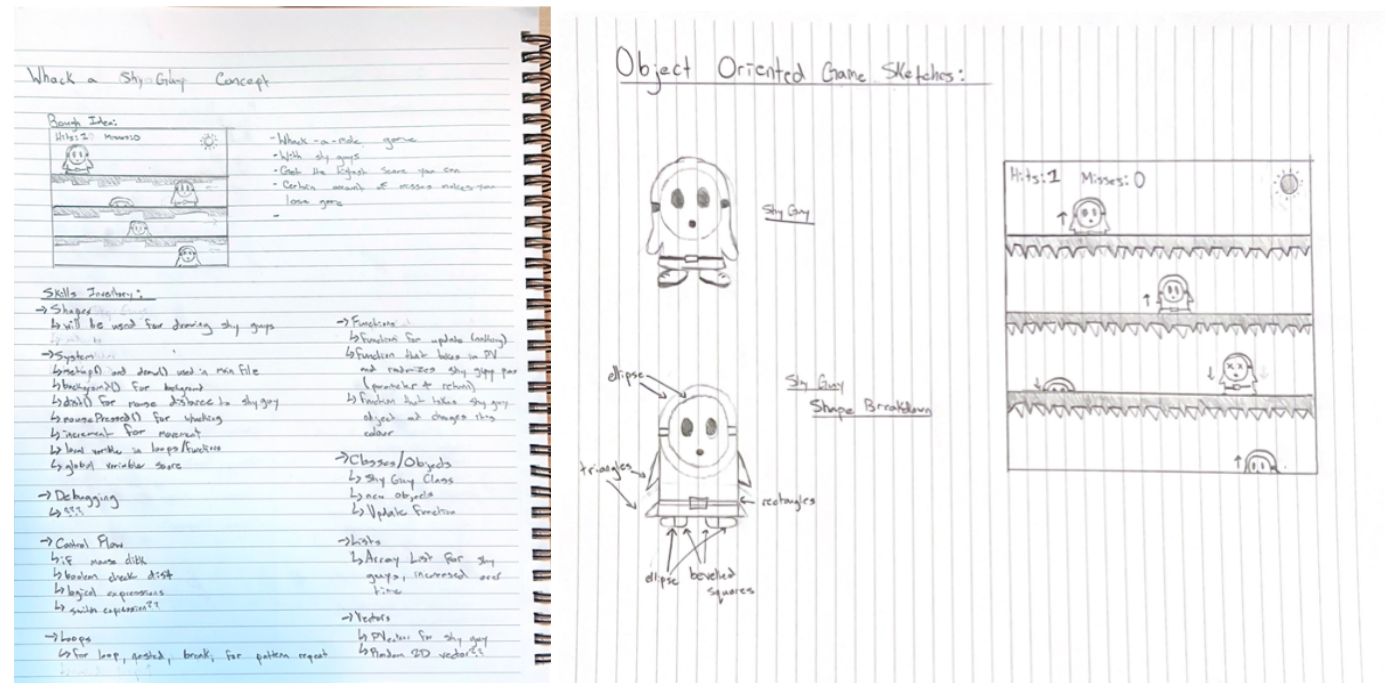 Whack a Shy Guy Concept
Rough Idea:
Hits: 1 Misses: 0
- Whack-a-mole game
- With shy guys
- Get the highest score you can
- Certain amount of misses makes you
lose game
-
Skills Inventory:
→ Shapes
↳ will be used for drawing shy guys
→ System
↳ setup() and draw() used in main file
↳ background() for background
↳ dist() for mouse distance to shy guy
↳ mousePressed() for whacking
↳ increment for movement
↳ local variable in loops/functions
↳ global variable score
→ Debugging
↳ ???
→ Control Flow
↳ if mouse
↳ boolean check dist
↳ logical expressions
↳ switch expression??
→ Loops
↳ for loop, nested, break, for pattern repeat
→ Functions
↳ Function for update (nothing)
↳ Function that takes in PV
and shy guy
(parameter + return)
↳ Function that takes shy guy
object and changes
colour
→ Classes/Objects
↳ Shy Guy Class
↳ new objects
↳ Update Function
→ Lists
↳ Array List for shy
guys, increased over
time
→ Vectors
↳ PVectors for shy guy
↳ Random 2D vector??
Object Oriented Game Sketches:
Shy Guy
Shy Guy
Shape Breakdown
ellipse
triangles
rectangles
ellipse bevelled
squares
Hits: 1 Misses: 0